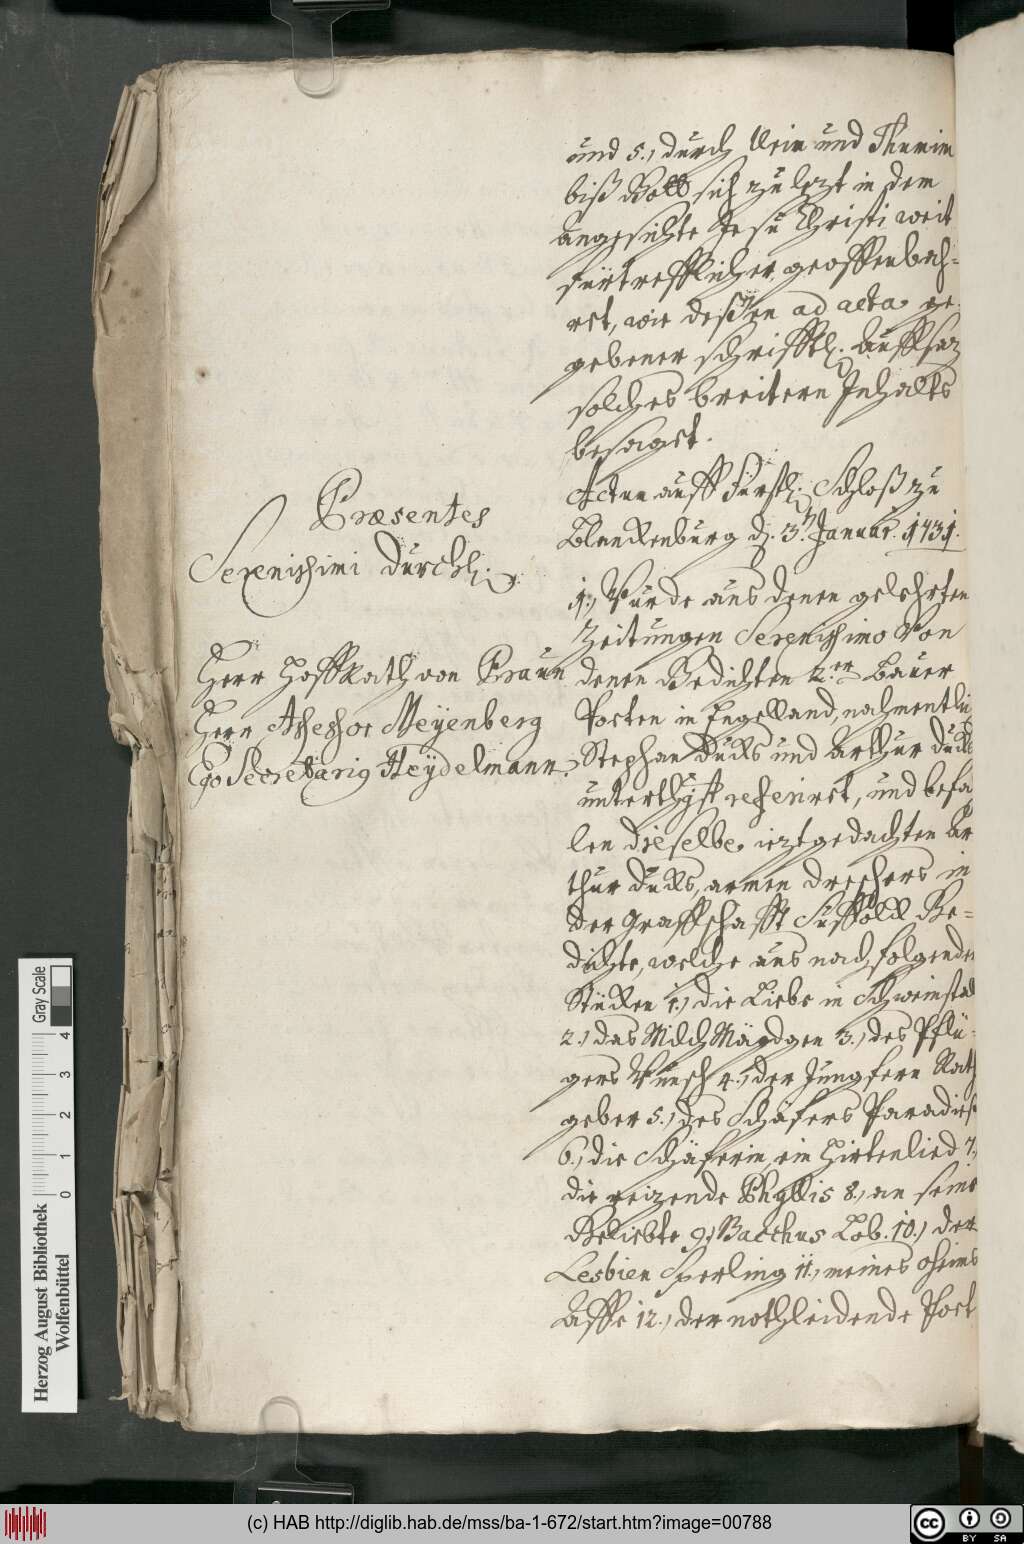 und 5., durch Urim und Thumim
biß Gott sich zu lezt in dem
angesichte Jesu Christi weit
fürtrefflicher geoffenbah-
ret, wie deßen ad acta ge-
gebener schrifftl. Auffsaz
solches breitern Inhalts
besaget.
Actum auff Fürstl. Schloß zu
Blanckenburg d. 3.t Januar. 1731.
Præsentes
Serenissimi Durchl.
Herr HoffRath von Praun
Herr Assessor Meyenberg
Ego Secretarius Heydelmann.
1., Wurde aus denen gelehrten
Zeitungen Serenissimo von
denen Gedichten 2.er Bauer
Poeten in Engelland, nahmentlich
Stephan Ducks und Arthur Ducks
unterthgst referiret, und befah
len dieselbe, iezt gedachten Ar
thur Ducks, armen dreschers in
der Graffschafft Suffolck Ge-
dichte, welche aus nachfolgenden
Stücken 1.) die Liebe in Schweinstall
2.) das MilchMägdgen 3., des Pflü-
gers Wunsch 4., der Jungfern Rath
geber 5., des Schäfers Paradieß
6., die Schäferin, ein Hirtenlied 7.,
die reizende Phyllis 8., an seine
Geliebte 9.) Bacchus Lob. 10.) der
Lesbien Sperling 11., meines oheims
Affe 12., der nothleidende Poet
Gray Scale
4
3
2
1
0
Herzog August Bibliothek
Wolfenbüttel
(c) HAB http://diglib.hab.de/mss/ba-1-672/start.htm?image=00788
cc BY SA